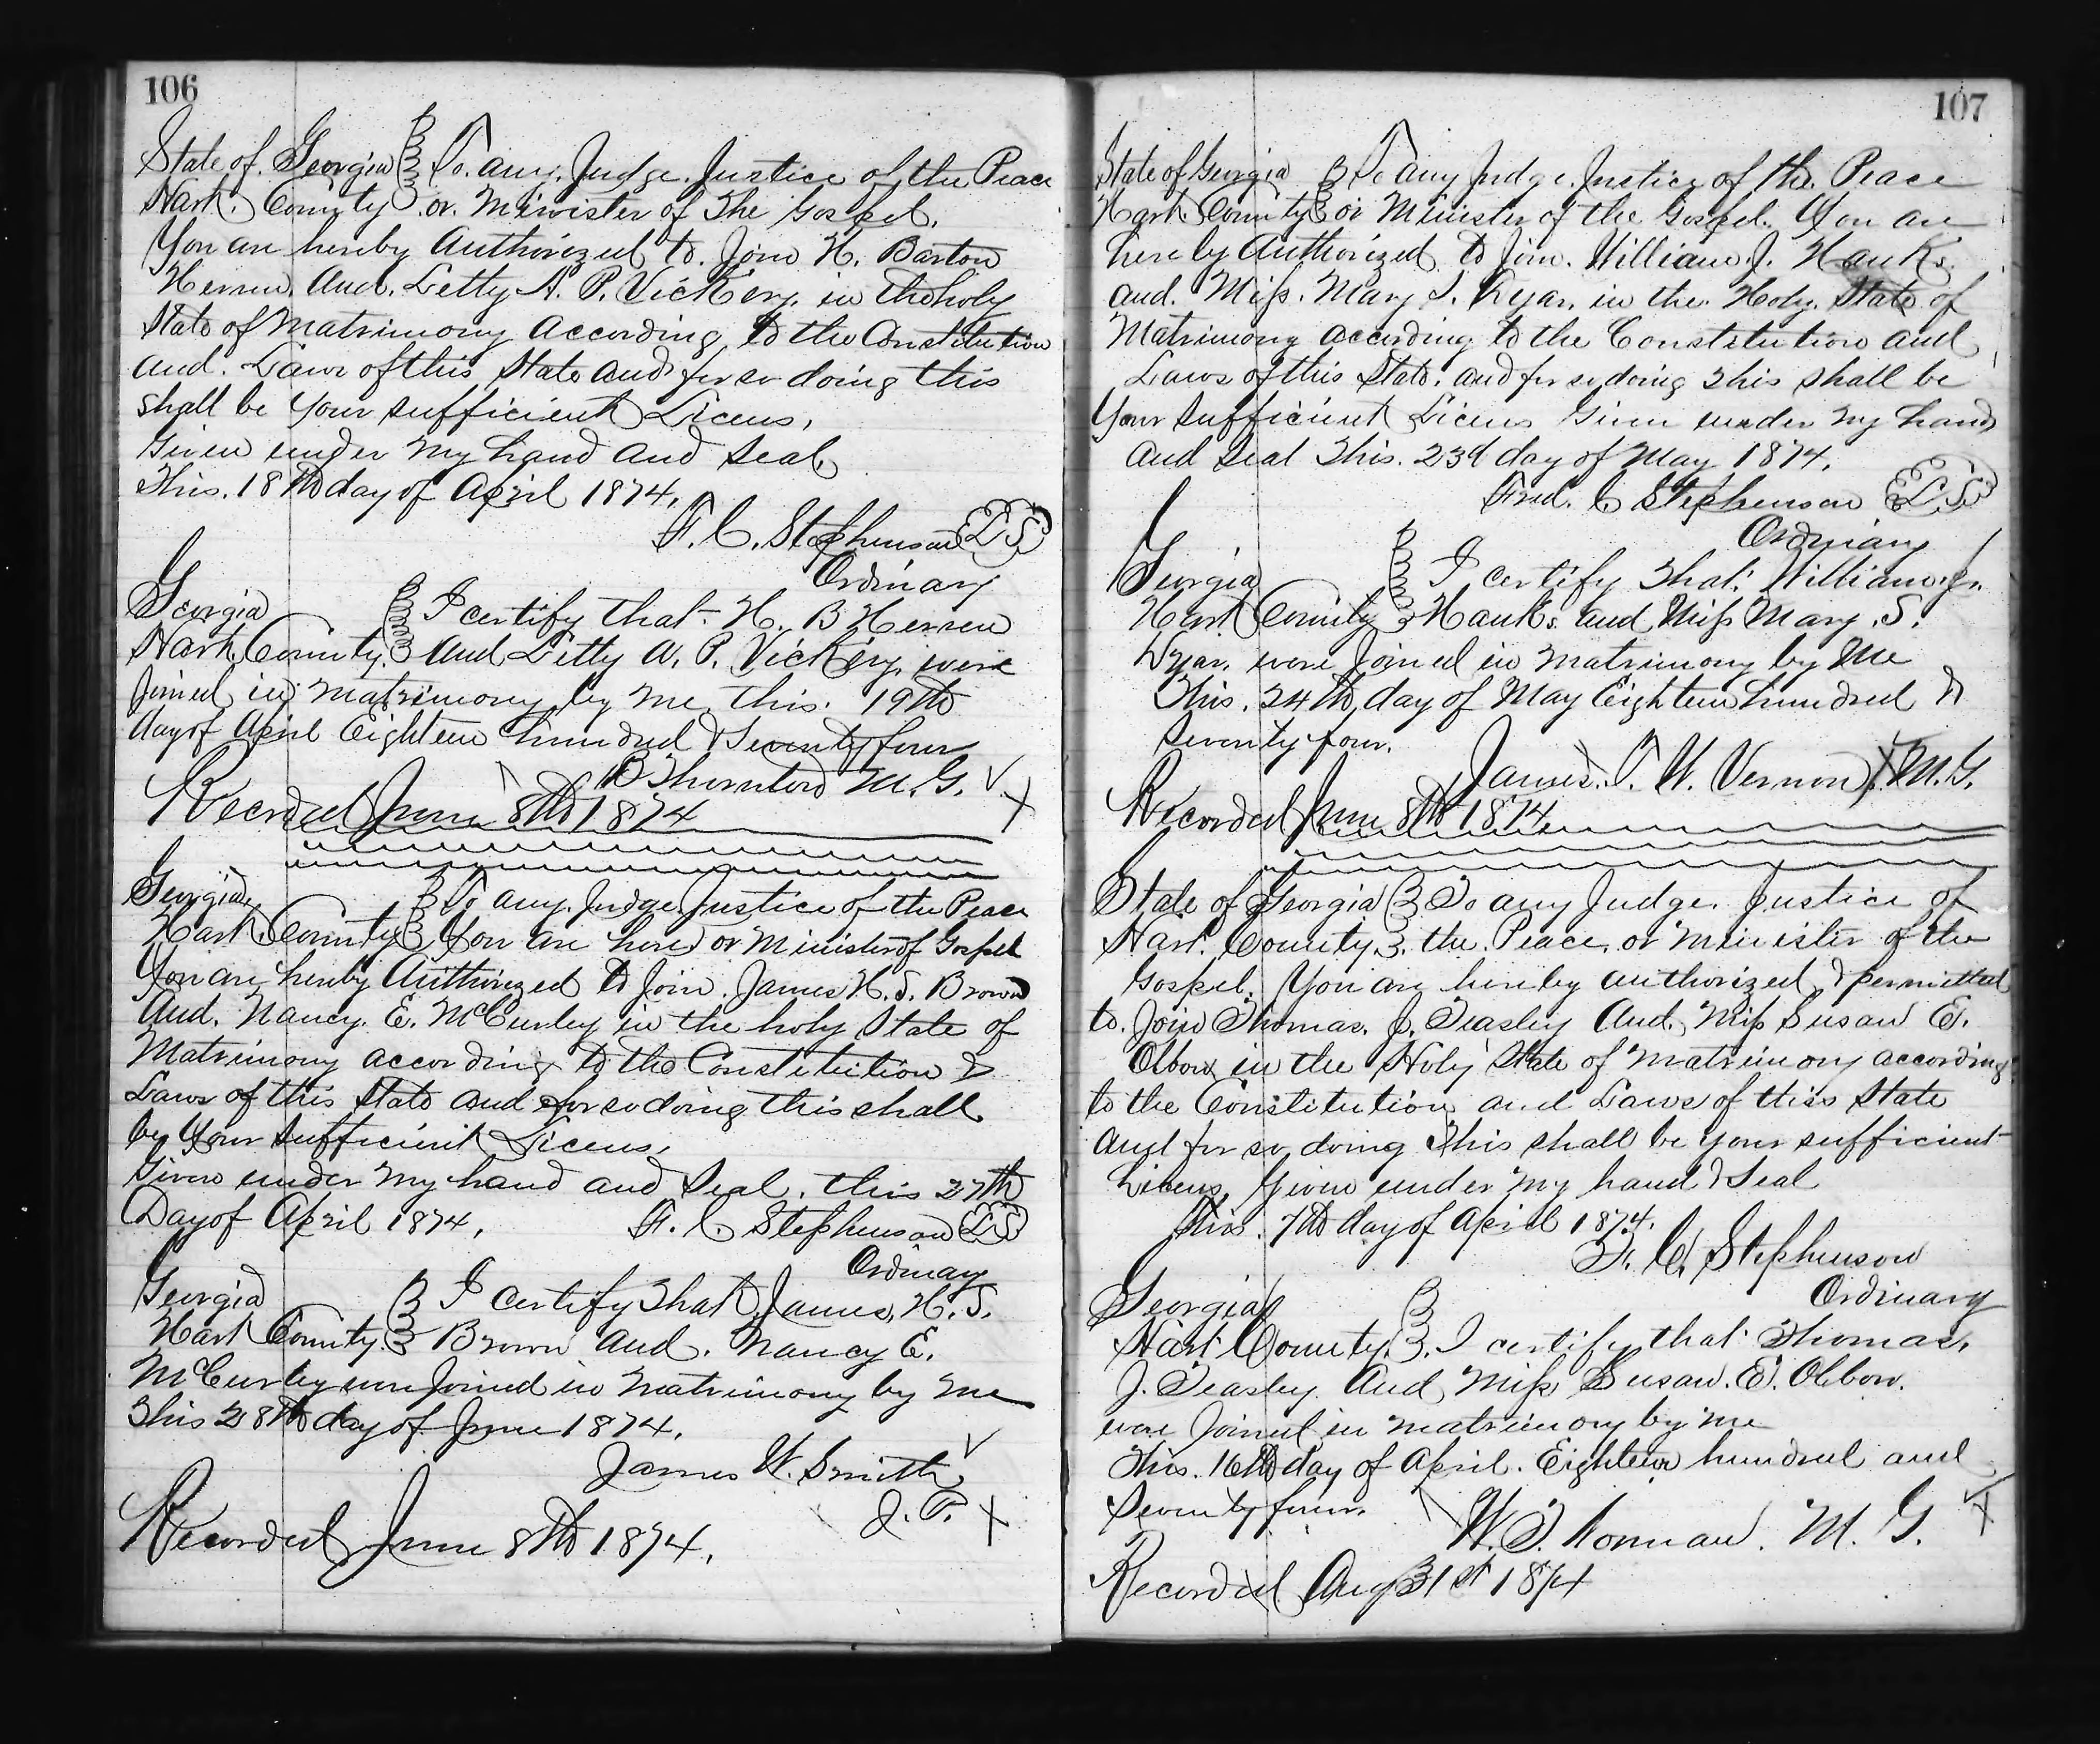 106
State of Georgia To any Judge Justice of the Peace
Hart County or Minister of The Gospel.
You are hereby Authorized to Join H. Barton
Herren And Letty A. P. Vickery in the holy
State of Matrimony according to the Constitution
and Laws of this State and for so doing this
shall be your sufficient Licens,
Given under my hand and seal
This 18th day of April 1874,
F. C. Stephenson LS
Ordinary
Georgia I certify that H. B Herren
Hart County And Letty A. P. Vickery were
joined in matrimony by me this 19th
day of April Eighteen hundred & Seventy four
B Thornton M. G.
Recorded June 8th 1874
Georgia To any Judge Justice of the Peace
Hart County You are here or Minister of Gospel
You are hereby Authorized to Join James H. S. Brown
And Nancy E. McCurley in the holy State of
Matrimony according to the Constitution &
Laws of this State and for so doing this shall
be your sufficient Licens,
Given under my hand and Seal, this 27th
Day of April 1874, F. C. Stephenson LS
Ordinary
Georgia I certify That James H. S.
Hart County Brown and Nancy E.
McCurley were Joined in Matrimony by me
This 28th day of June 1874.
James W. Smith
J. P.
Recorded June 8th 1874.
107
State of Georgia To any Judge Justice of the Peace
Hart County or Minister of the Gospel. You are
hereby Authorized to Join William J. Hanks
and Miss Mary S. Dyar in the Holy State of
Matrimony according to the Constitution and
Laws of this State, and for so doing This shall be
Your sufficient Licens Given under my hand
and seal This 23d day of May 1874.
Fred. C Stephenson LS
Ordinary
Georgia I certify That William J.
Hart County Hanks and Miss Mary S.
Dyar were Joined in Matrimony by Me
This 24th day of May Eighteen hundred &
Seventy four.
James T. W. Vernon M. G.
Recorded June 8th 1874
State of Georgia To any Judge Justice of
Hart County the Peace or Minister of the
Gospel. You are hereby authorized & permitted
to Join Thomas J. Teasley And Miss Susan E.
in the Holy State of Matrimony according
to the Constitution and Laws of this State
and for so doing This shall be your sufficient
Licens Given under my hand & Seal
This 7th day of April 1874.
F. C. Stephenson
Ordinary
Georgia
Hart County I certify that Thomas
J. Teasley And Miss Susan E.
were Joined in matrimony by me
This 16th day of April Eighteen hundred and
Seventy four.
W. T. Norman M. G.
Recorded Aug 31st 1874